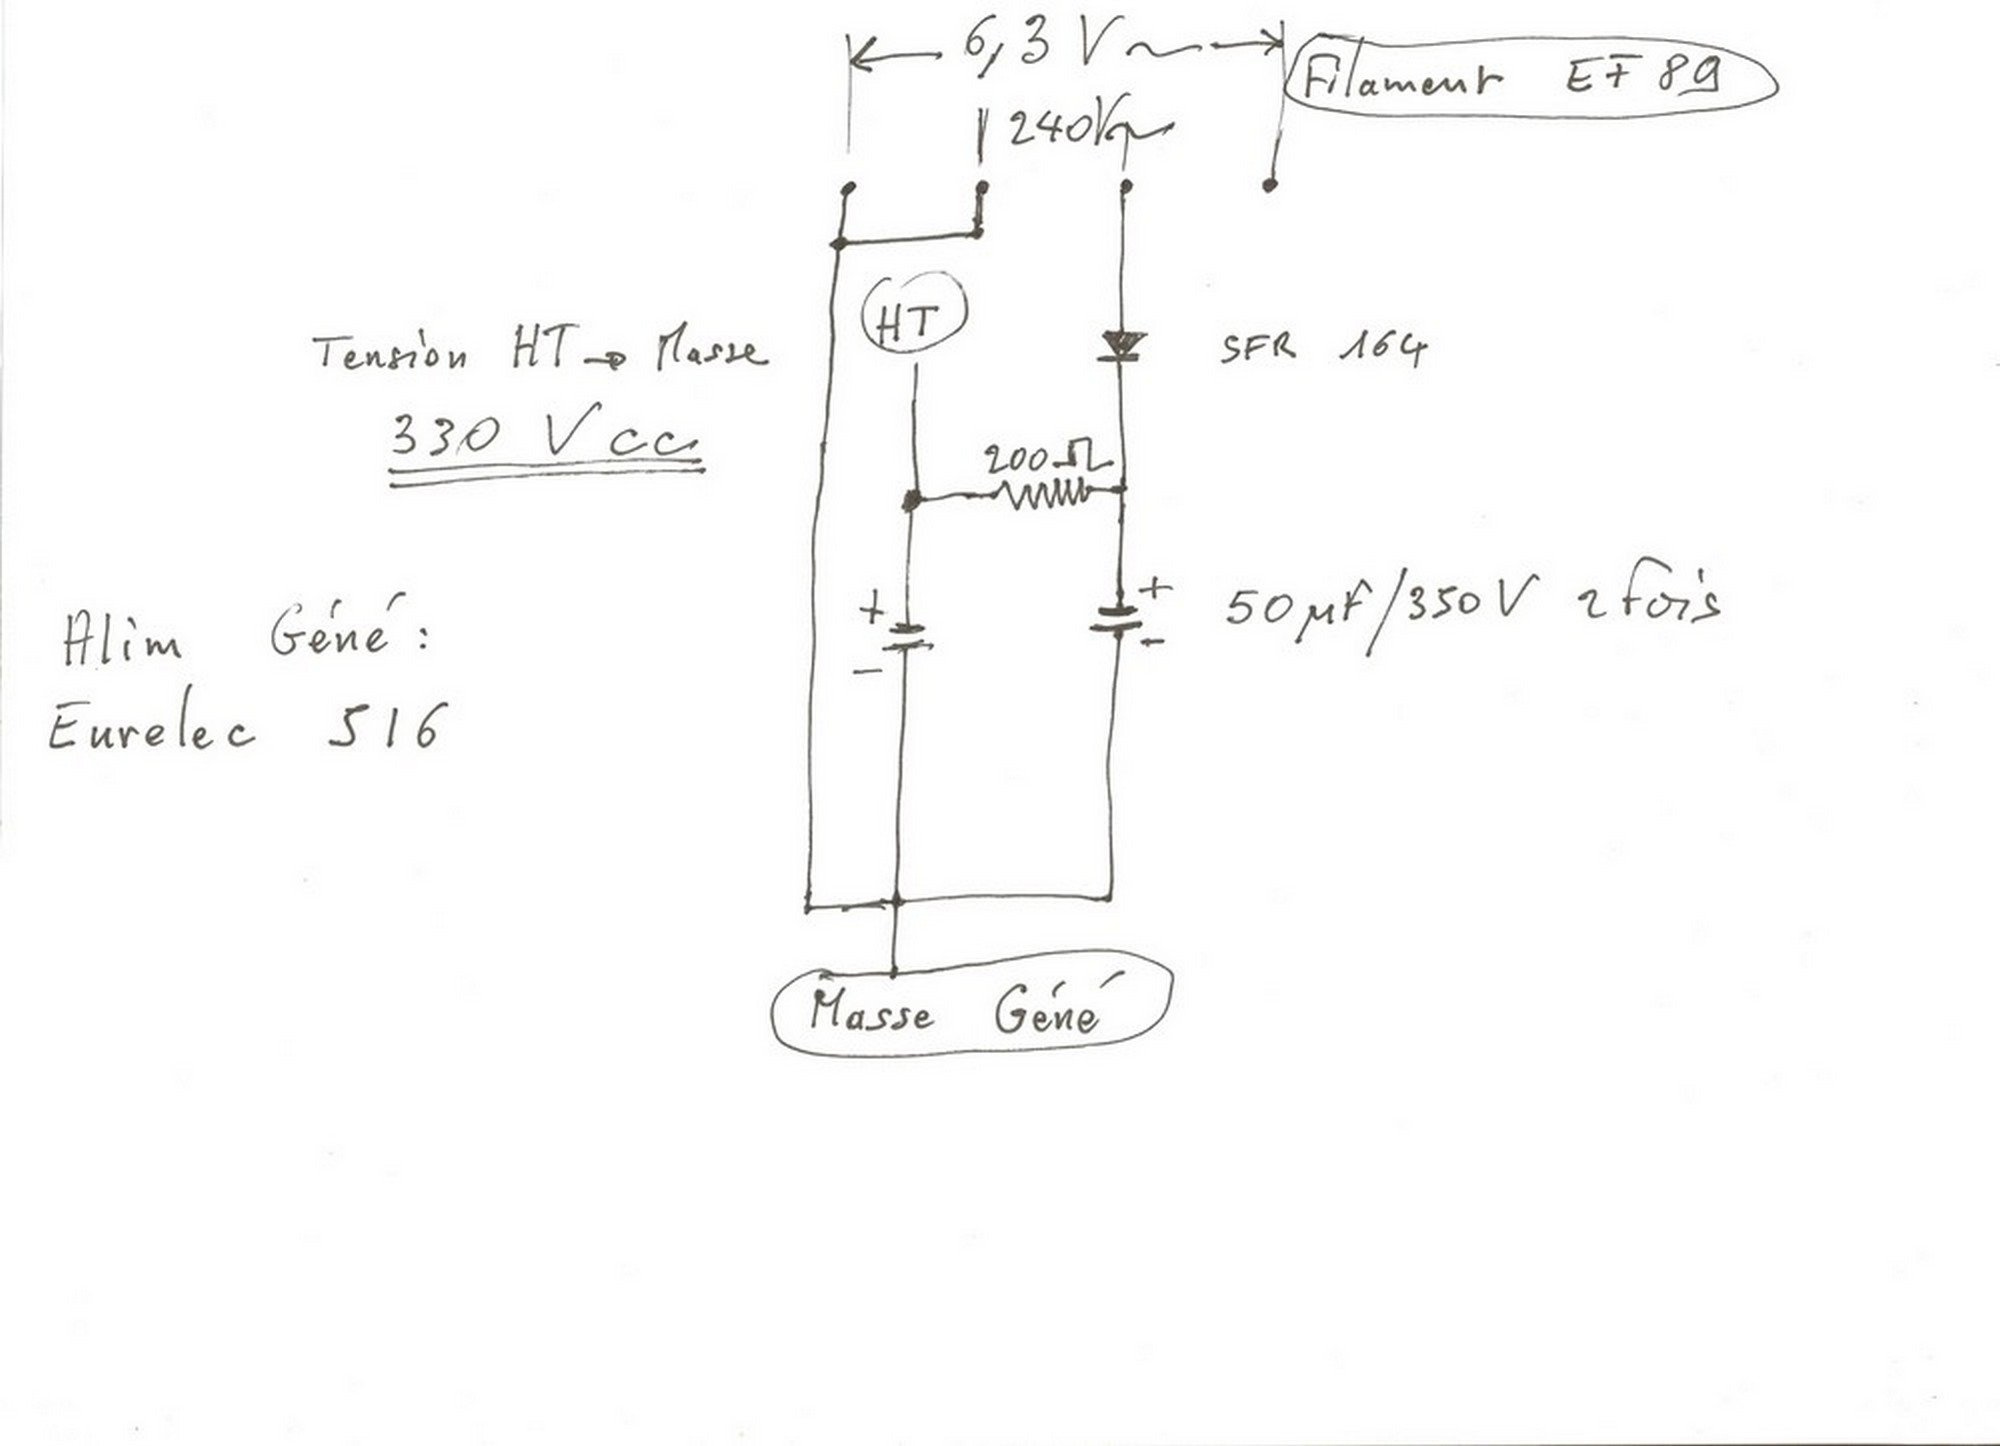 6,3 V ~
Filament EF 89
240V~
HT
Tension HT → Masse
330 V cc
SFR 164
200 Ω
+
-
+
-
50 µF/350V 2 fois
Alim Géné:
Eurelec 516
Masse Géné